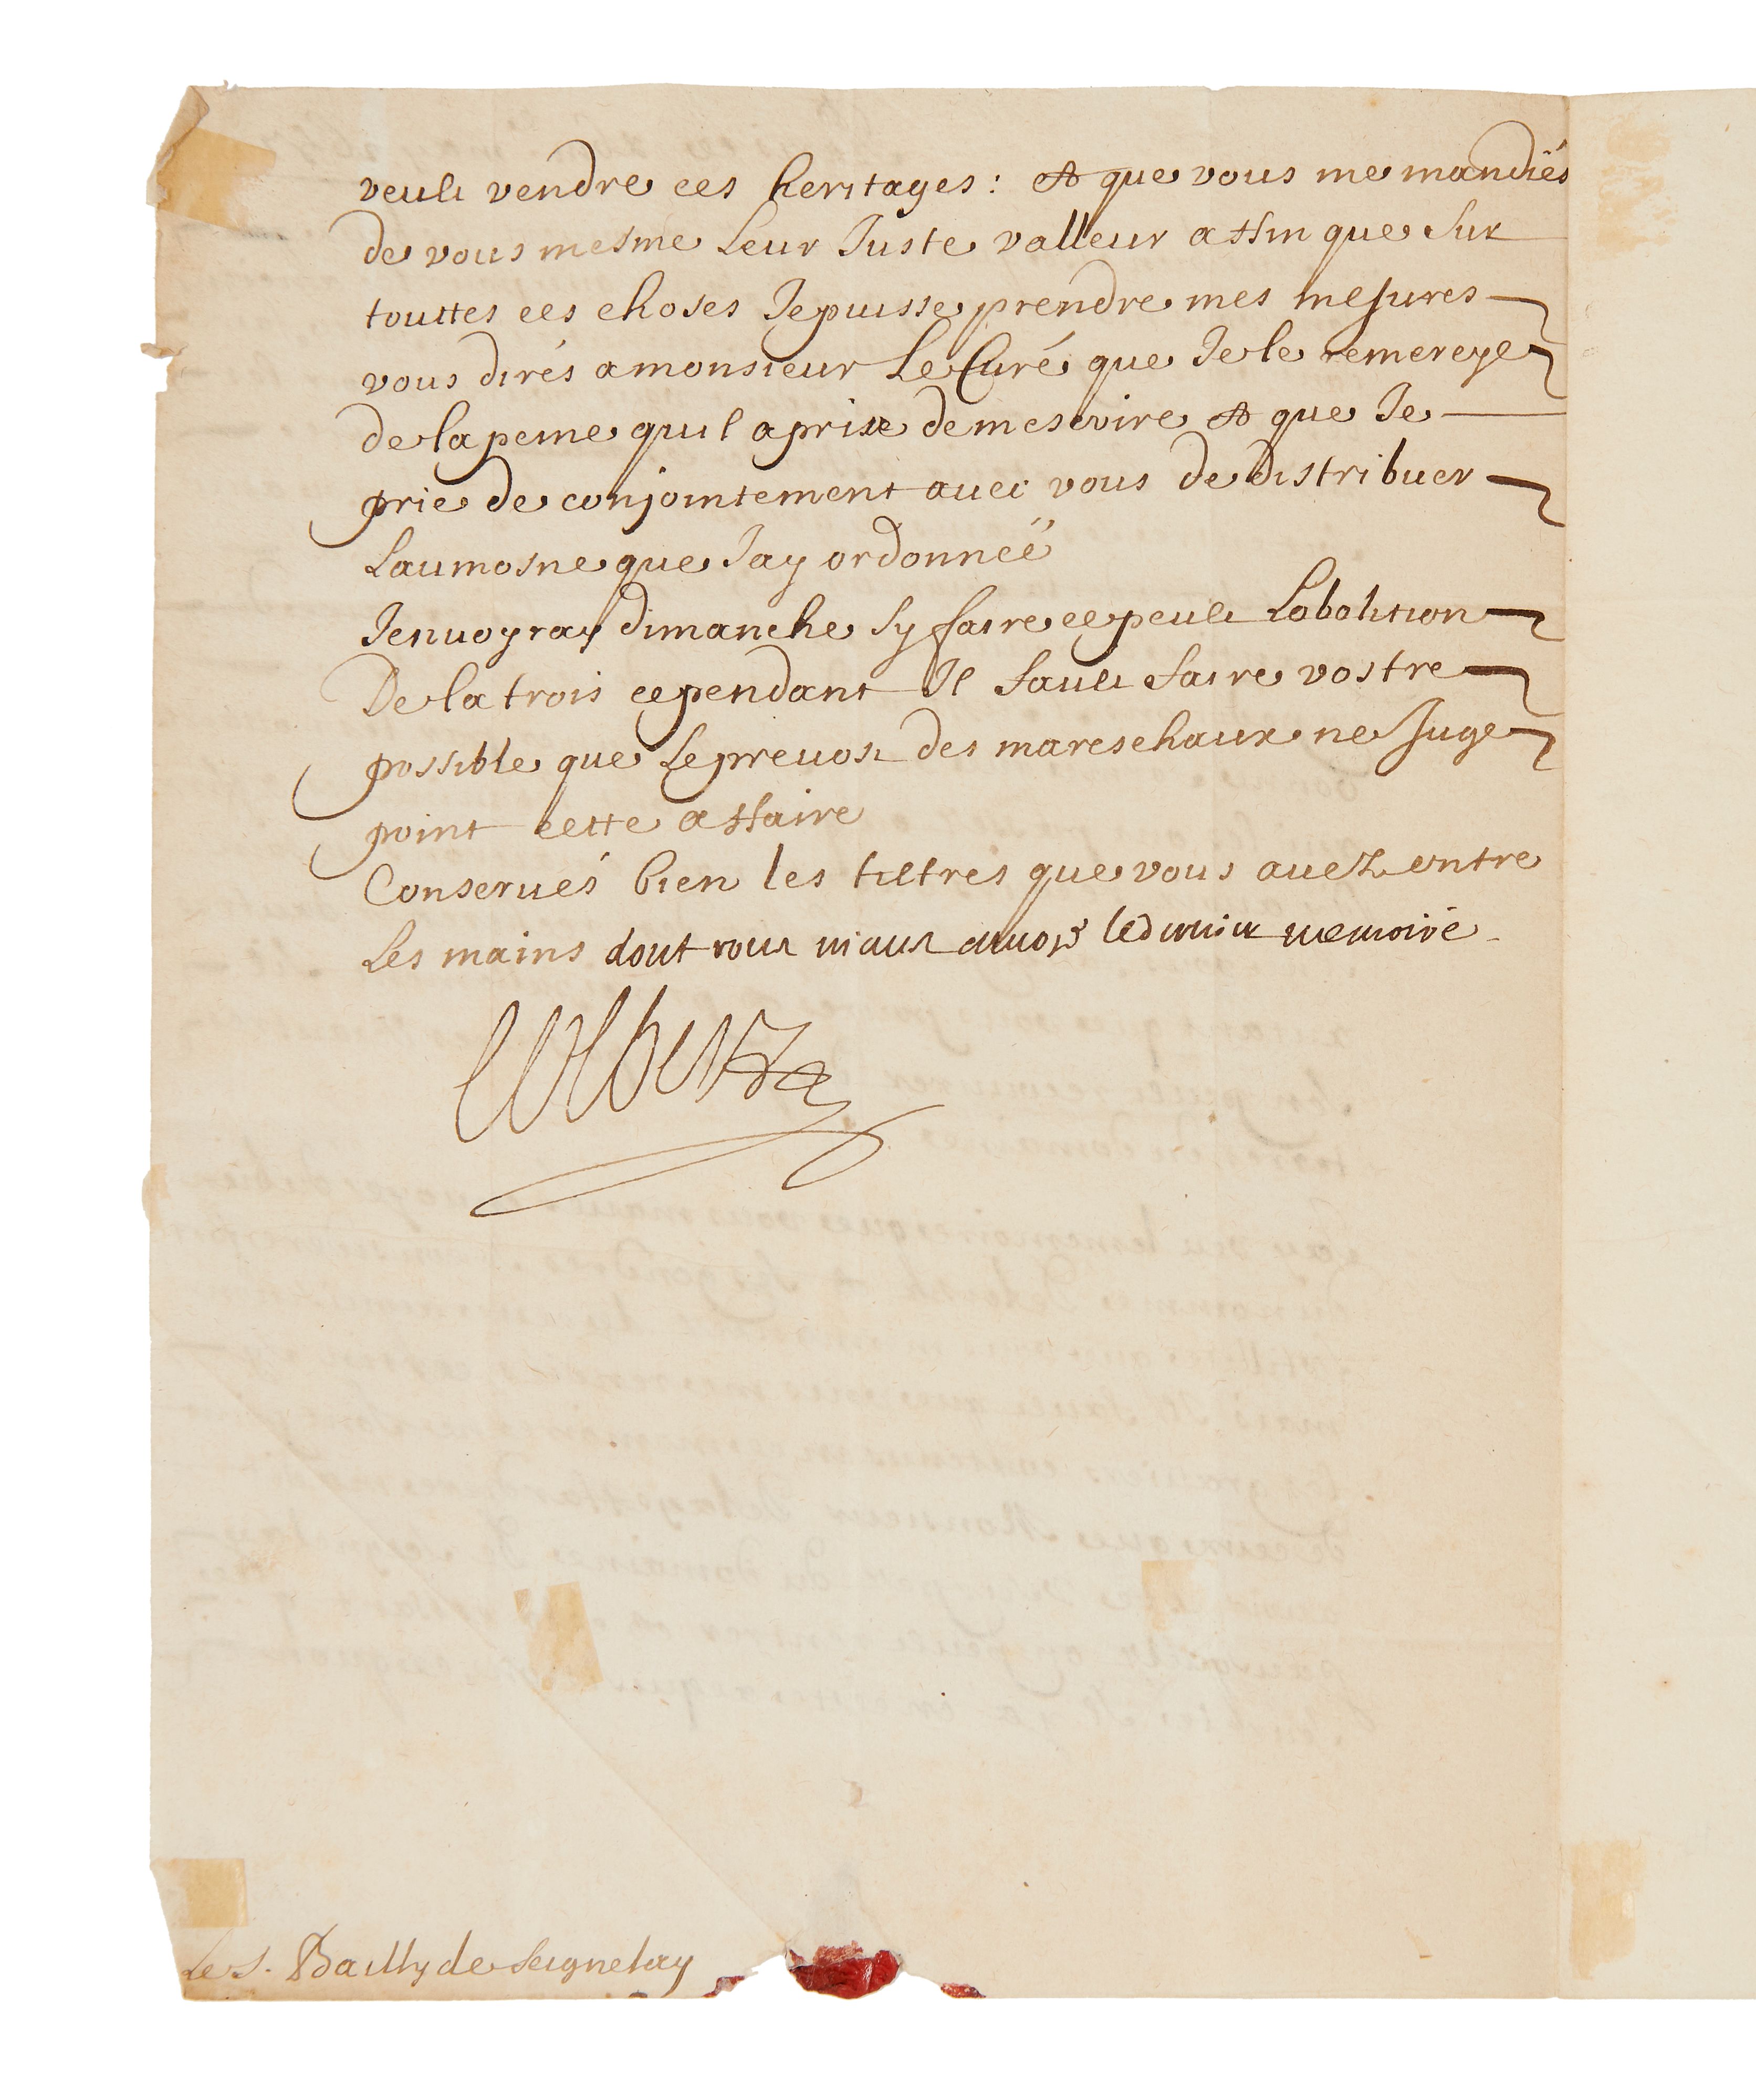 veult vendre ces heritages : et que vous me mandiés
de vous mesme Leur Juste valleur affin que sur
touttes ces choses Je puisse prendre mes mesures
vous dirés a monsieur Le Curé que Je le remercye
de la peine quil a prise de mescrire et que Je
prie de conjointement avec vous de distribuer
Laumosne que Jay ordonneé
Jenuoyray dimanche sy faire ce peult Labolition
De la trois cependant Il fault faire vostre
possible que Le preuost des mareschaux ne Juge
point cette affaire
Conserués bien les tiltres que vous auez entre
Les mains dont vous m'aues enuoyé le dernier memoire
Colbert
Le S. Bailly de Seignelay